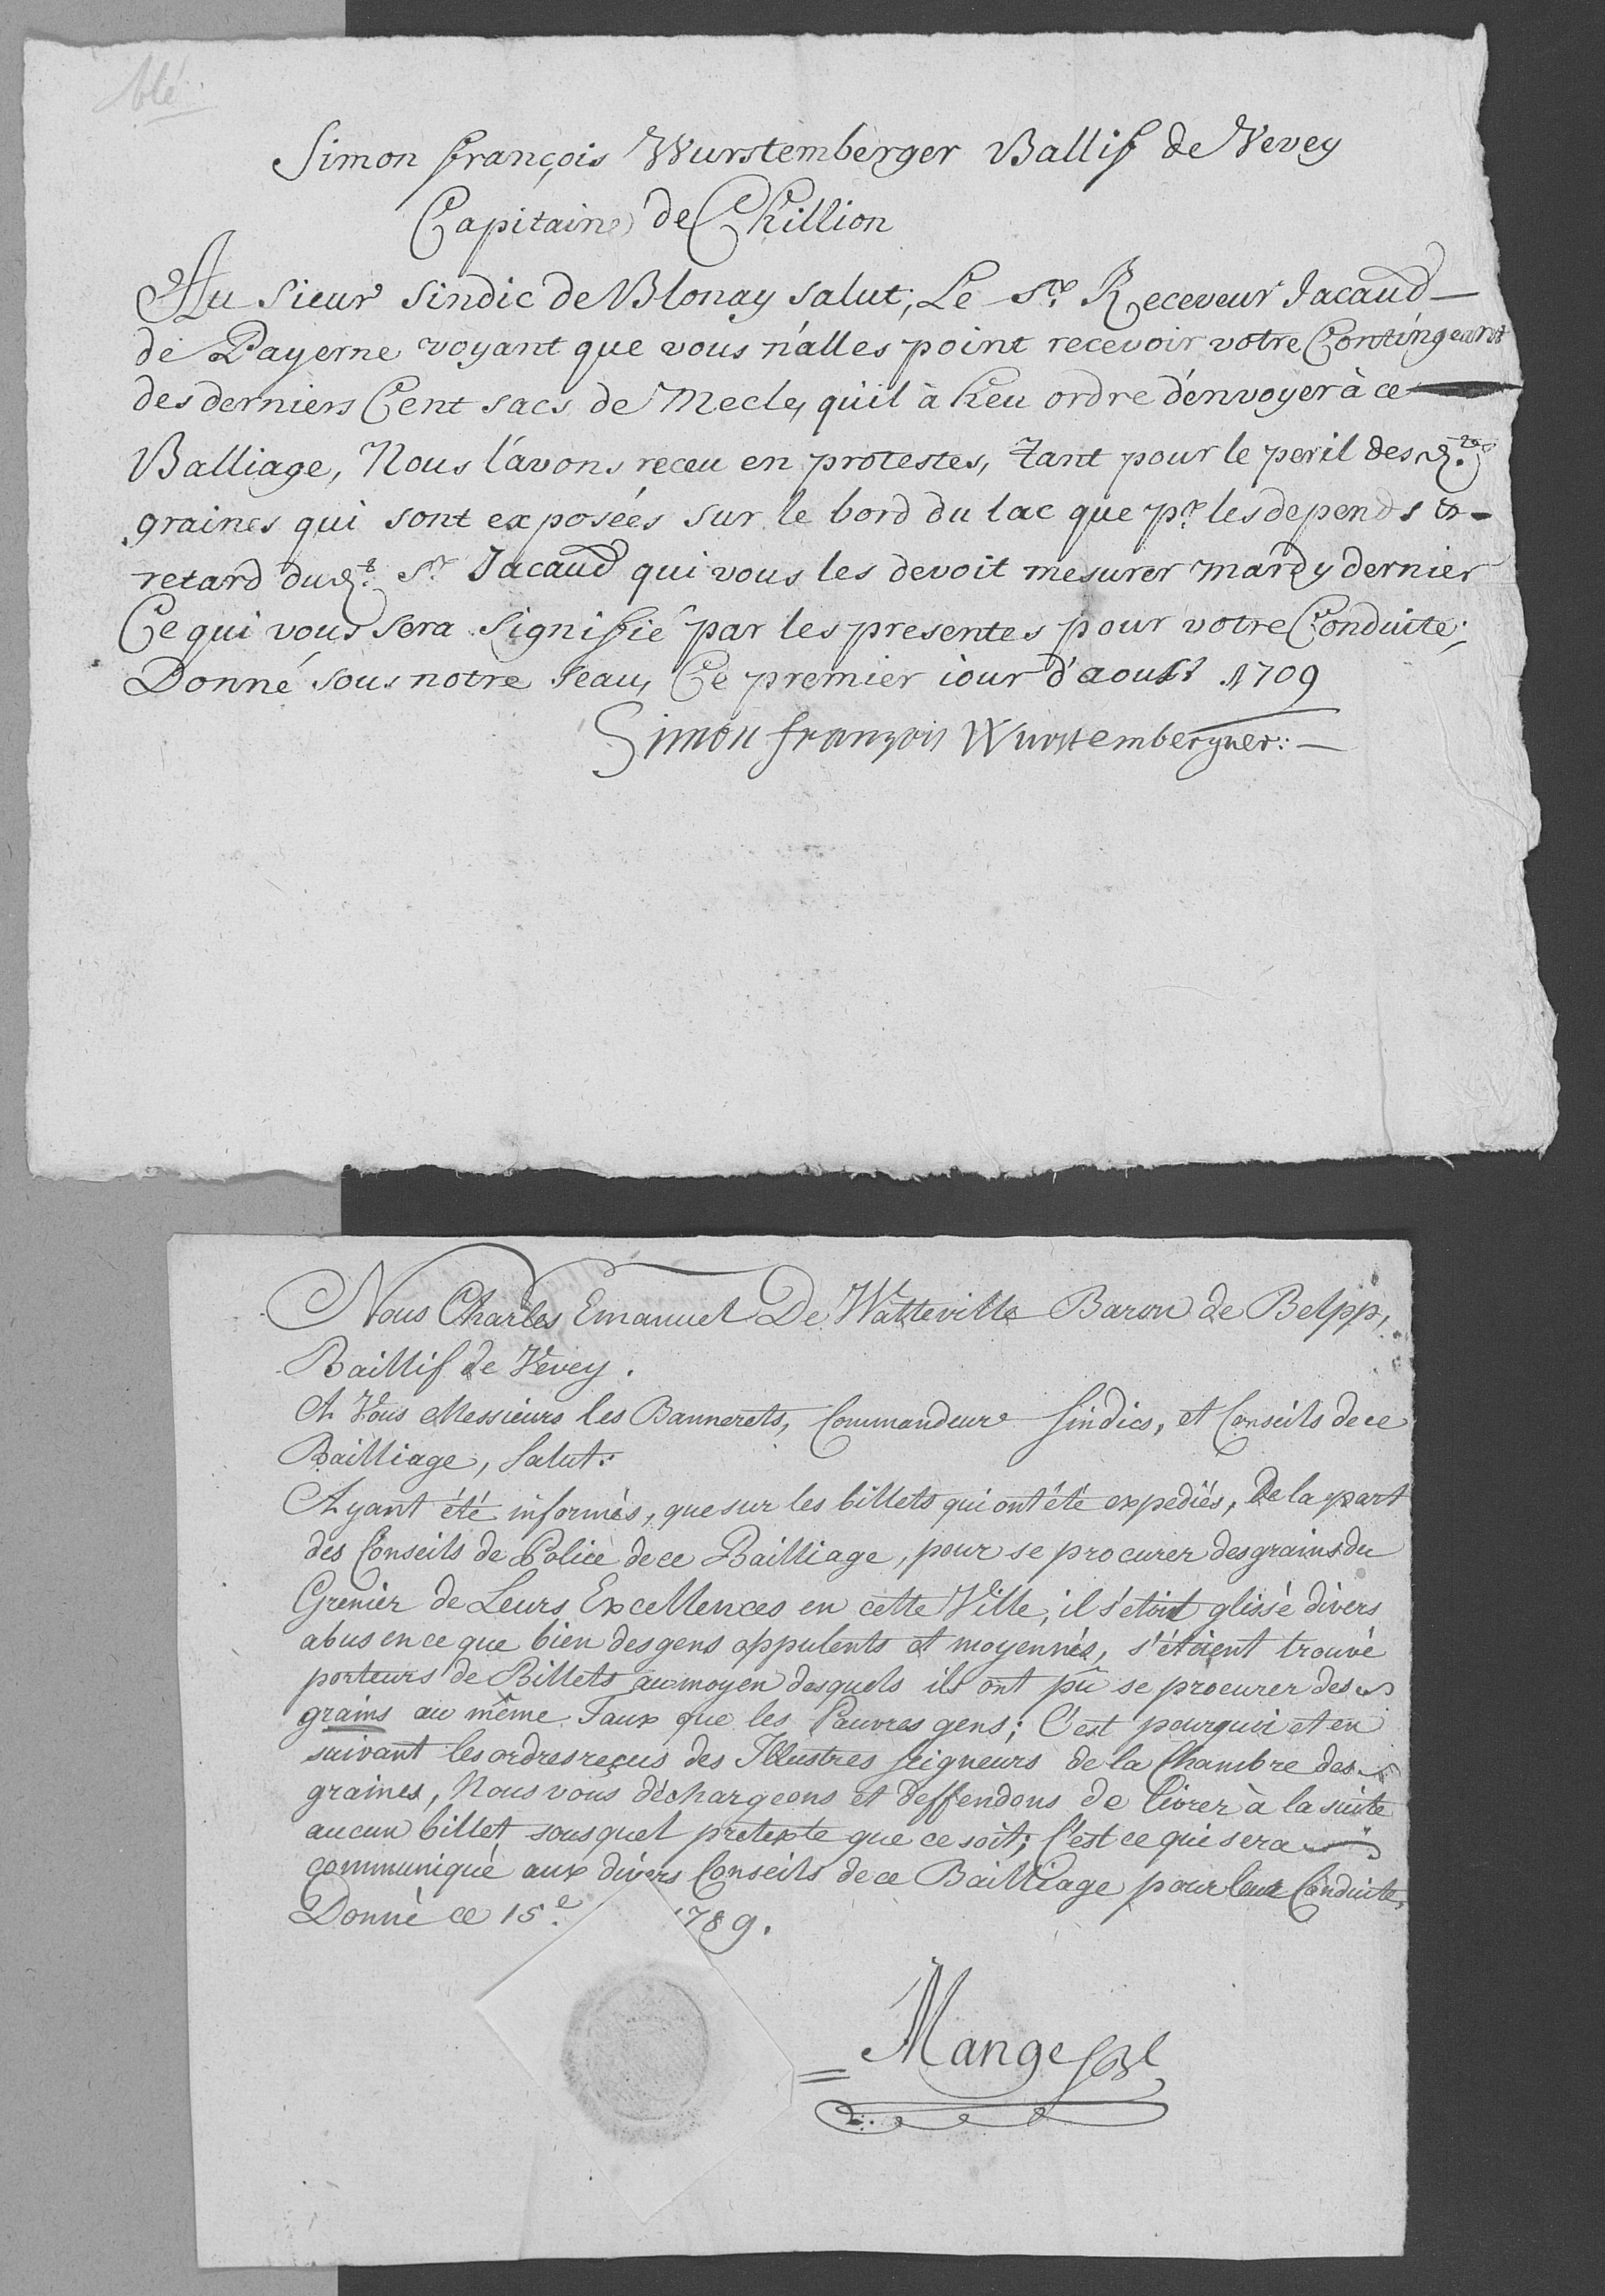 blé
Simon françois Wurstemberger Ballif de Vevey
Capitaine de Chillion
Au Sieur Sindic de Blonay salut; Le Sr. Receveur Jacaud
de Payerne voyant que vous n'alles point recevoir votre Contingeant
des derniers Cent sacs de Mecle, qu'il à heu ordre d'envoyer à ce
Balliage, Nous l'avons receu en protestes, tant pour le peril des
graines qui sont exposées sur le bord du lac que pr. les depends &
retard dudt. Sr. Jacaud qui vous les devoit mesurer mardy dernier
Ce qui vous sera signifié par les presentes pour votre Conduite;
Donné sous notre seau, Ce premier iour d'aoust 1709
Simon françois Wurstemberguer:
Nous Charles Emanuel De Watteville Baron de Belpp,
Baillif de Vevey.
A Vous Messieurs les Bannerets, Commandeur Sindics, et Conseils de ce
Bailliage, Salut.
Ayant été informés, que sur les billets qui ont été expediés, De la part
des Conseils de Police de ce Bailliage, pour se procurer des grains du
Grenier de Leurs Excellences en cette Ville, il s'etoit glissé divers
abus en ce que bien des gens oppulents et moyennés, s'étoient trouvé
porteurs de Billets au moyen desquels ils ont pû se procurer des
grains au même Taux que les Pauvres gens; C'est pourquoi et en
suivant les ordres reçus des Illustres seigneurs de la Chambre des
graines, Nous vous déchargeons et deffendons de livrer à la suite
aucun billet sous quel pretexte que ce soit; C'est ce qui sera
communiqué aux divers Conseils de ce Bailliage pour leur Conduite,
Donné ce 15e. 1789.
Mange